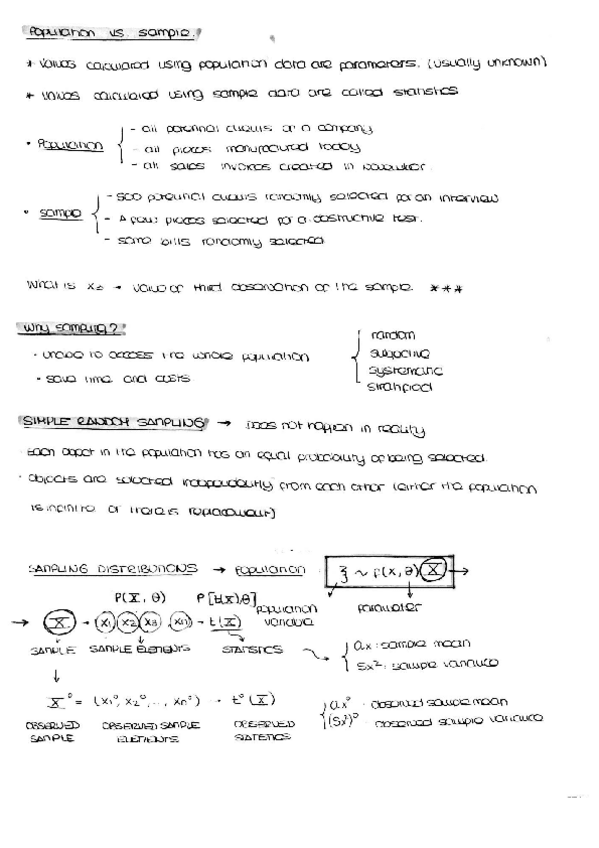 Population vs. Sample.
* Values calculated using population data are parameters. (usually unknown)
* Values calculated using sample data are called statistics
• Population { - all potential clients of a company
- all pieces manufactured today
- all sales invoices created in november.
• Sample { - 500 potential clients randomly selected for an interview
- A few pieces selected for a destructive test.
- some bills randomly selected
What is x3 → value of third observation of the sample. ***
Why sampling?
• unable to access the whole population
• save time and costs
{ random
systematic
stratified
SIMPLE RANDOM SAMPLING → Does not happen in reality
· Each object in the population has an equal probability of being selected.
· objects are selected independently from each other (either the population
is infinite or there is replacement)
SAMPLING DISTRIBUTIONS → population ξ ~ P(X, θ) X →
P(X, θ) P[t(X),θ] population variable parameter
→ X → X1 X2 X3 Xn → t(X)
SAMPLE SAMPLE ELEMENTS STATISTICS { ax: sample mean
Sx²: sample variance
↓
X° = (X1°, X2°, ..., Xn°) → t°(X) { ax° → observed sample mean
(Sx²)° → observed sample variance
OBSERVED SAMPLE OBSERVED SAMPLE ELEMENTS OBSERVED STATISTICS